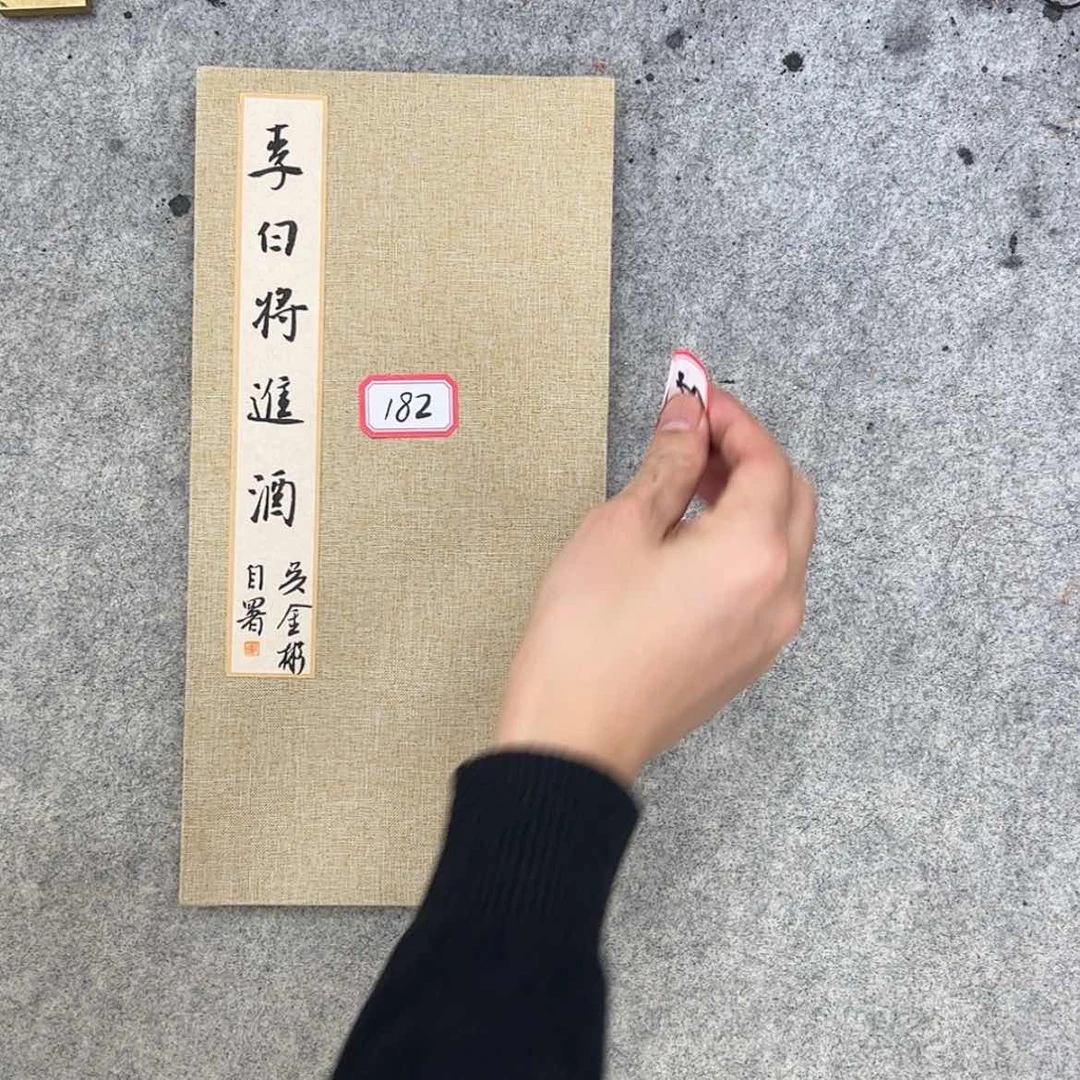 李白将進酒
吴金彬
自署
182